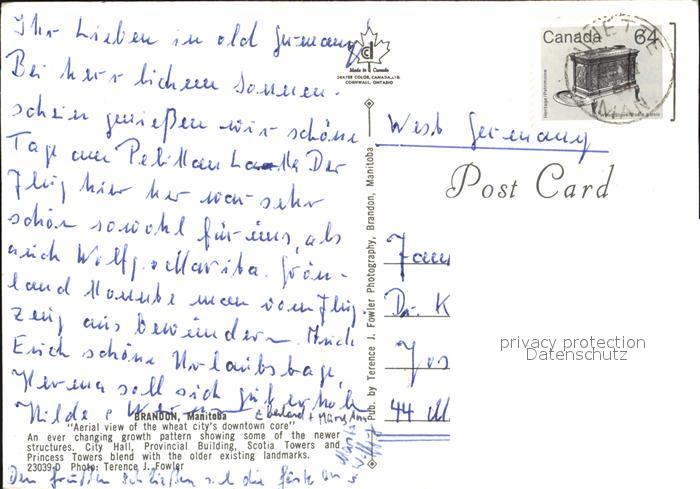 Ihr Lieben in old Germany
Bei herrlichem Sonnen-
schein genießen wir schöne
Tage am Pelikan Der
Flug hier her war sehr
schön sowohl für uns, als
auch Wolfg. Grön-
land konnte man vom Flug-
zeug aus bewundern. Auch
Euch schöne Urlaubstage,
Verena soll sich gut erholen
Hilde
Made in Canada
DEXTER COLOR, CANADA, LTD.
CORNWALL, ONTARIO
Canada 64
Heritage/Patrimoine
MAN
West Germany
Post Card
Fam
Dr. K
Jos
44 M
privacy protection
Datenschutz
Pub. by Terence J. Fowler Photography, Brandon, Manitoba
BRANDON, Manitoba
"Aerial view of the wheat city's downtown core"
An ever changing growth pattern showing some of the newer
structures. City Hall, Provincial Building, Scotia Towers and
Princess Towers blend with the older existing landmarks.
23039-D Photo: Terence J. Fowler
Den Grüßen schließen s. die